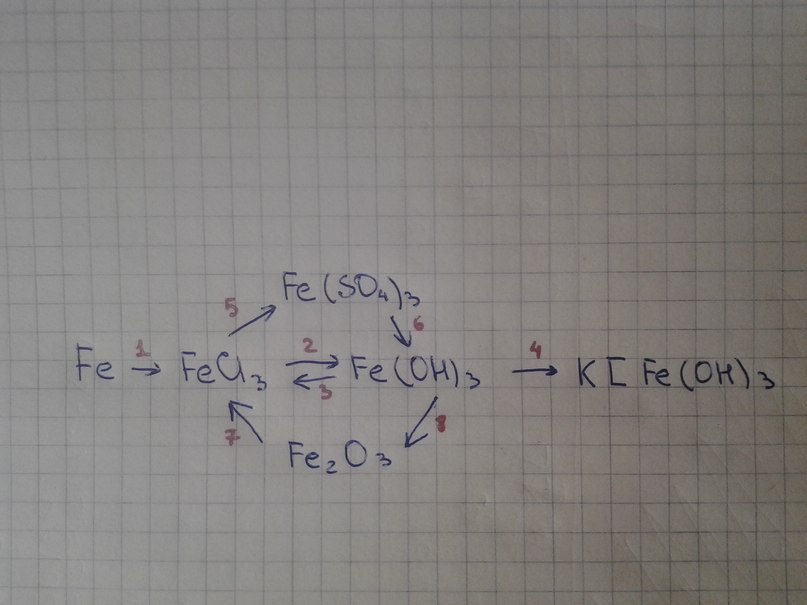 Fe(SO₄)₃
5 6
Fe 1→ FeCl₃ 2→ ←3 Fe(OH)₃ 4→ K[Fe(OH)₃
7 8
Fe₂O₃